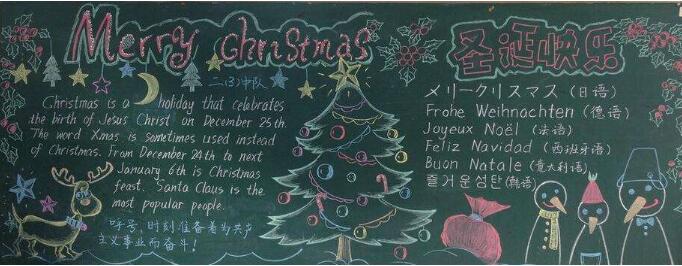 Merry Christmas
二(3)中队
Christmas is a holiday that celebrates
the birth of Jesus Christ on December 25th
The word Xmas is sometimes used instead
of Christmas. From December 24th to next
January 6th is Christmas
feast. Santa Claus is the
most popular people.
呼号:时刻准备着为共产
主义事业而奋斗!
圣诞快乐
メリークリスマス(日语)
Frohe Weihnachten (德语)
Joyeux Noël (法语)
Feliz Navidad (西班牙语)
Buon Natale (意大利语)
즐거운성탄(韩语)